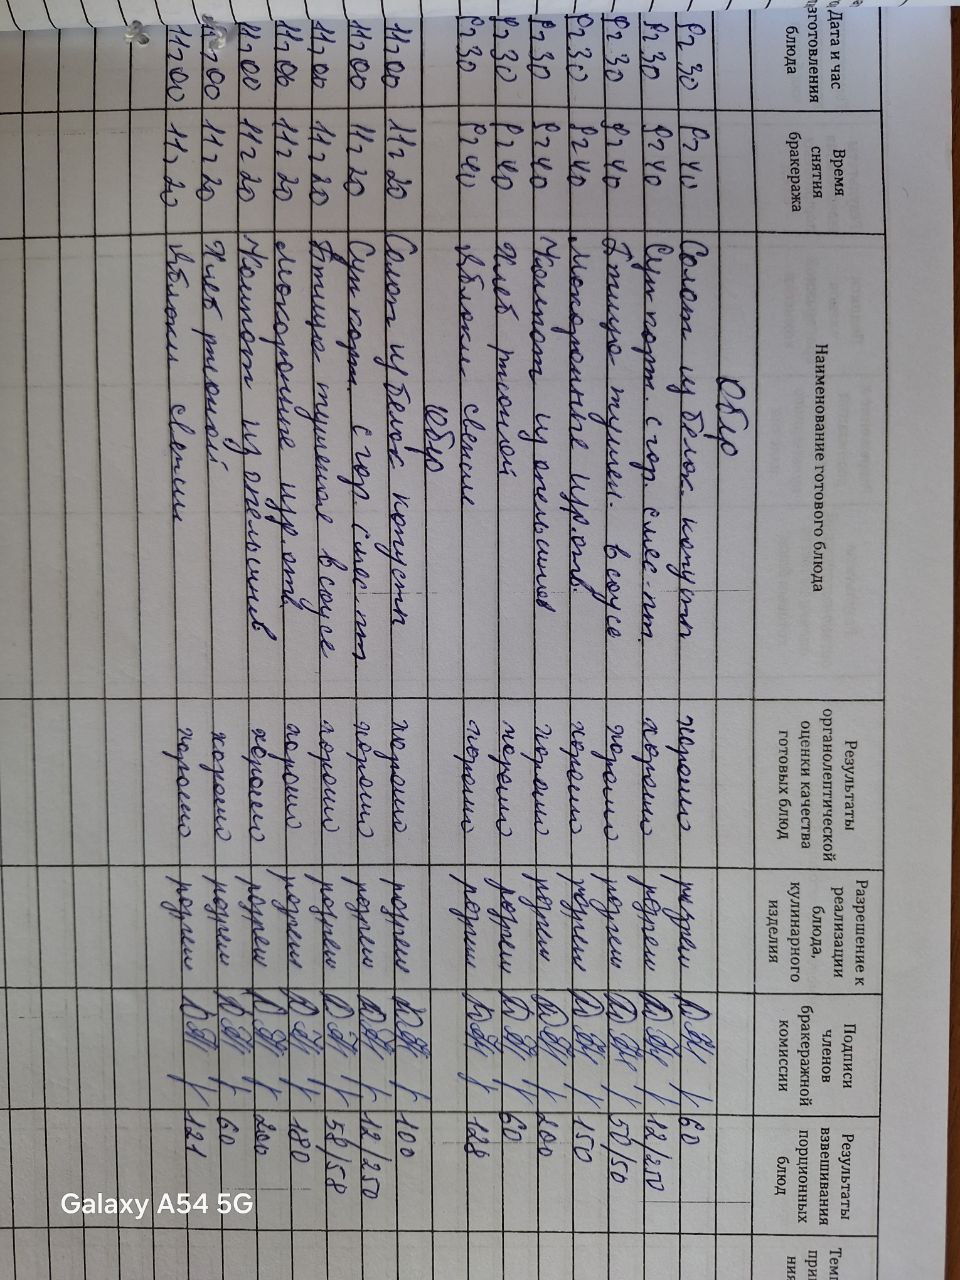 Дата и час изготовления блюда | Время снятия бракеража | Наименование готового блюда | Результаты органолептической оценки качества готовых блюд | Разрешение к реализации блюда, кулинарного изделия | Подписи членов бракеражной комиссии | Результаты взвешивания порционных блюд
Обед
9 30 | 9 40 | Салат из белок. капусты | хорошо | разреш | 60
9 30 | 9 40 | Суп карт. с гор. смес-пт. | хорошо | разреш | 12/250
9 30 | 9 40 | Птица тушен. в соусе | хорошо | разреш | 50/50
9 30 | 9 40 | Макаронные изр. отв. | хорошо | разреш | 150
9 30 | 9 40 | Компот из апельсинов | хорошо | разреш | 200
9 30 | 9 40 | Хлеб ржаной | хорошо | разреш | 60
9 30 | 9 40 | Яблоки свежие | хорошо | разреш | 128
Обед
11 00 | 11 20 | Салат из белок капусты | хорошо | разреш | 100
11 00 | 11 20 | Суп карт. с гор. смес-пт | хорошо | разреш | 12/250
11 00 | 11 20 | Птица тушеная в соусе | хорошо | разреш | 58/58
11 00 | 11 20 | Макаронные изр. отв | хорошо | разреш | 180
11 00 | 11 20 | Компот из апельсинов | хорошо | разреш | 200
11 00 | 11 20 | Хлеб ржаной | хорошо | разреш | 60
11 00 | 11 20 | Яблоки свежии | хорошо | разреш | 121
Galaxy A54 5G